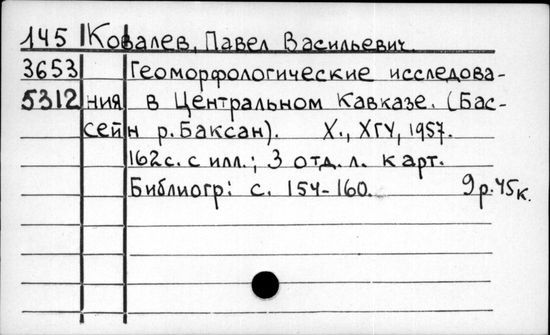 145 Ковалев, Павел Васильевич.
3653 Геоморфологические исследова-
5312 ния в Центральном Кавказе. (Бас-
сейн р. Баксан). Х., ХГУ, 1957.
162с. с илл.; 3 отд. л. карт.
Библиогр: с. 154-160. 9р.45к.